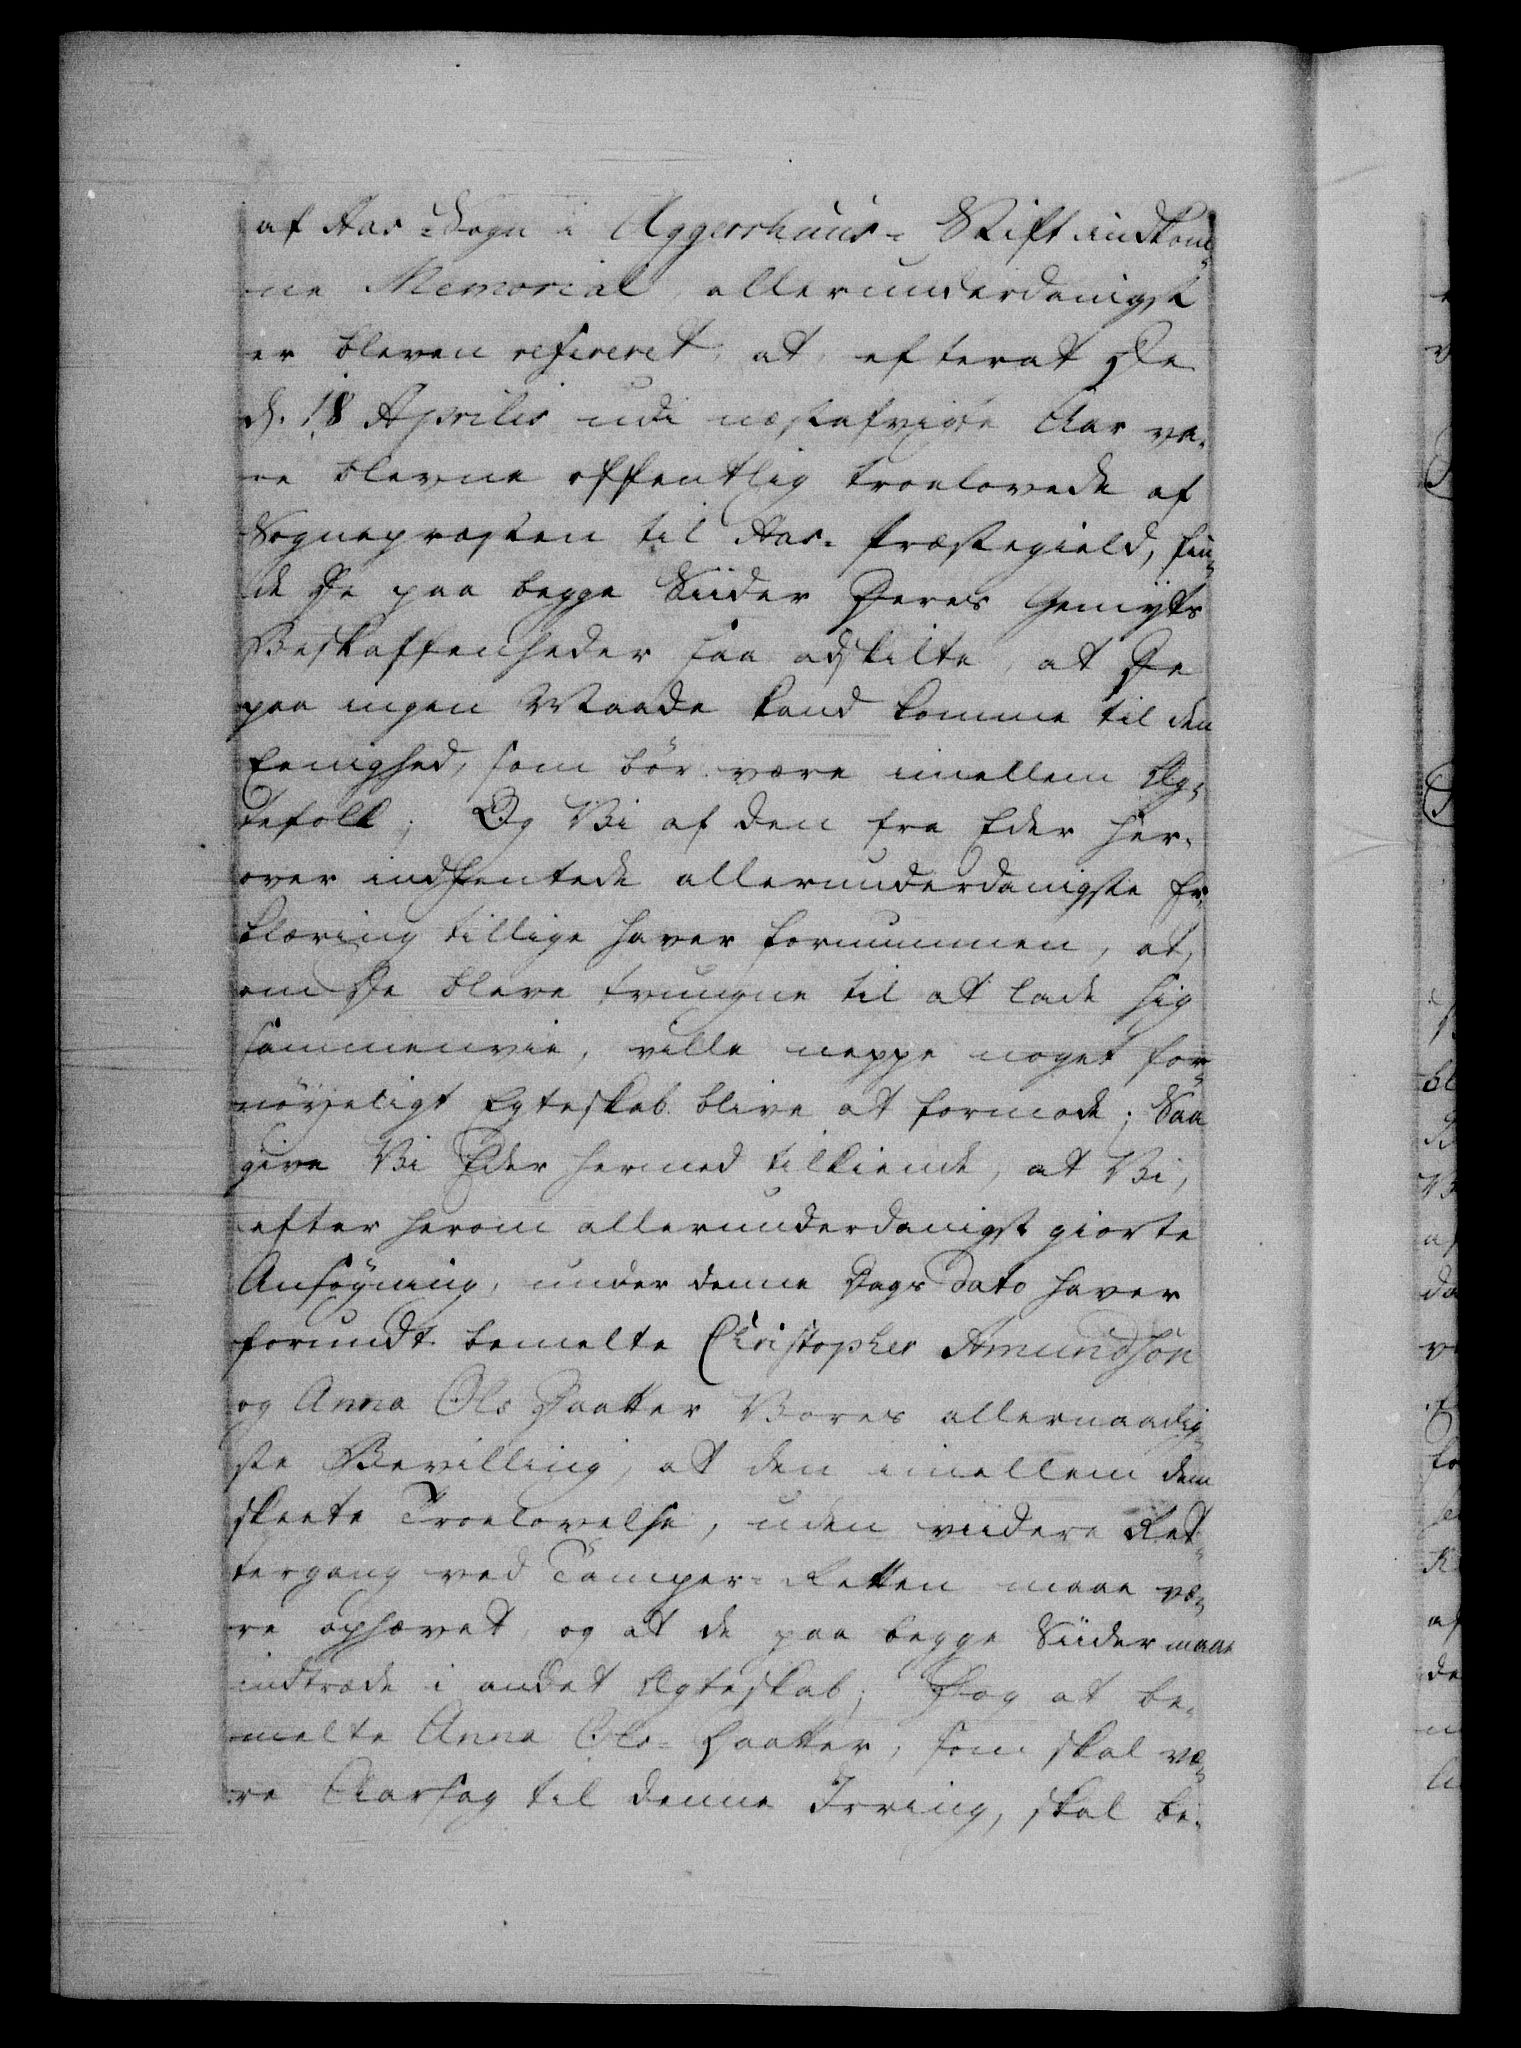 af Aas-Sogn i Aggerhuus-Stift indkom¬
ne Memorial allerunderdanigst
er bleven refereret, at, efterat De
d. 18 Aprilis udi næstafvigte Aar va¬
re blevne offentlig troelovede af
Sognepræsten til Aas-Præstegield, fin¬
de De paa begge Siider Deres Gemyts
Beskaffenheder saa adskilte, at De
paa ingen Maade kand komme til den
Eenighed, som bör være imellem Æg¬
tefolk; Og Vi af den fra Eder her¬
over indhentede allerunderdanigste Er¬
klæring tillige haver fornummen, at,
om De bleve tvungne til at lade sig
sammenvie, ville neppe noget for¬
nöyeligt Egteskab blive at formode; Saa
give Vi Eder hermed tilkiende, at Vi,
efter herom allerunderdanigst giorte
Ansøgning, under denne Dags Dato haver
forundt bemelte Christopher Amundsön
og Anna Ols Daatter Vores allernaadig¬
ste Bevilling, at den imellem dem
skeete Troelovelse, uden viidere Ret¬
tergang ved Tamper-Retten maae væ¬
re ophævet, og at de paa begge Siider maae
indtræde i andet Ægteskab; Dog at be¬
melte Anna Ols-Daatter, som skal væ¬
re Aarsag til denne Irring, skal be¬